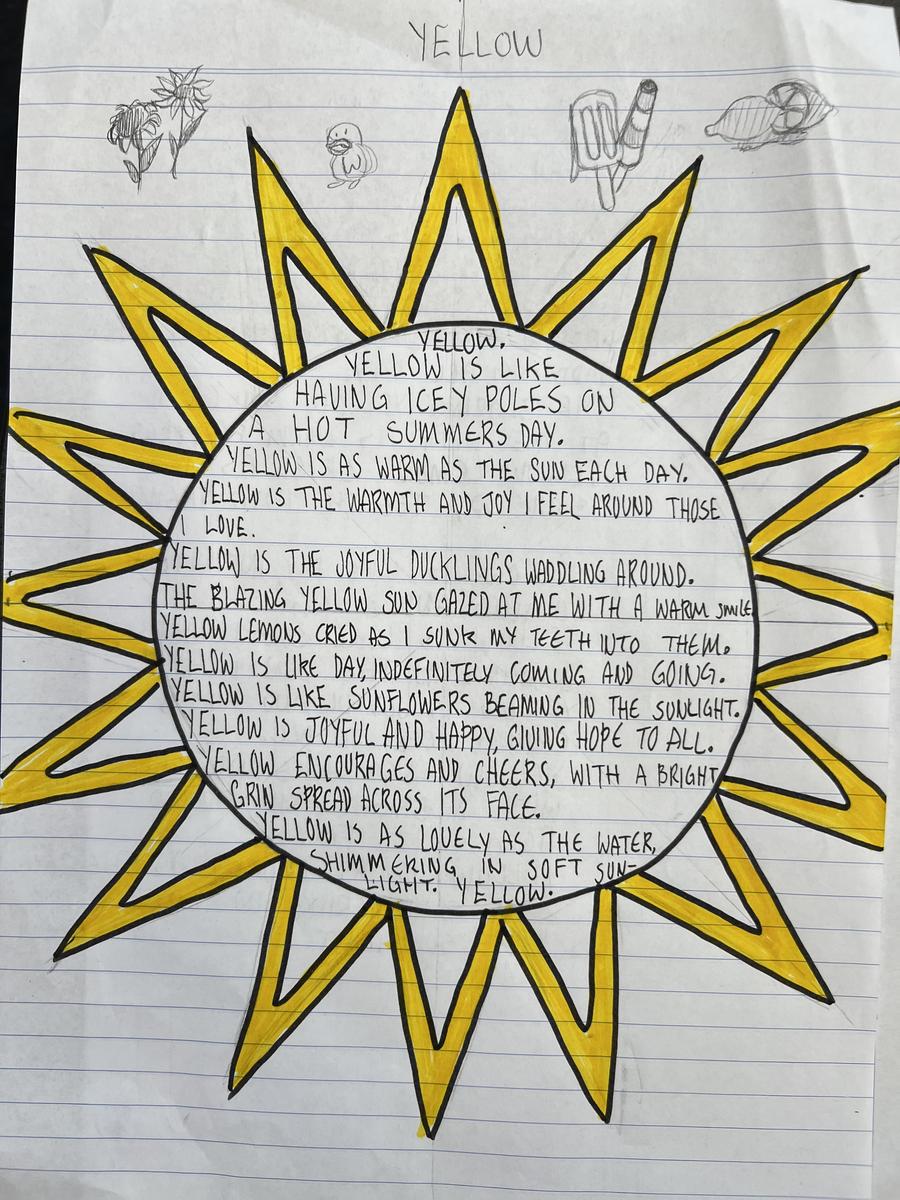 YELLOW
YELLOW.
YELLOW IS LIKE
HAVING ICEY POLES ON
A HOT SUMMERS DAY.
YELLOW IS AS WARM AS THE SUN EACH DAY.
YELLOW IS THE WARMTH AND JOY I FEEL AROUND THOSE
I LOVE.
YELLOW IS THE JOYFUL DUCKLINGS WADDLING AROUND.
THE BLAZING YELLOW SUN GAZED AT ME WITH A WARM smile.
YELLOW LEMONS CRIED AS I SUNK MY TEETH INTO THEM.
YELLOW IS LIKE DAY, INDEFINITELY COMING AND GOING.
YELLOW IS LIKE SUNFLOWERS BEAMING IN THE SUNLIGHT.
YELLOW IS JOYFUL AND HAPPY, GIVING HOPE TO ALL.
YELLOW ENCOURAGES AND CHEERS, WITH A BRIGHT
GRIN SPREAD ACROSS ITS FACE.
YELLOW IS AS LOVELY AS THE WATER,
SHIMMERING IN SOFT SUN-
LIGHT. YELLOW.